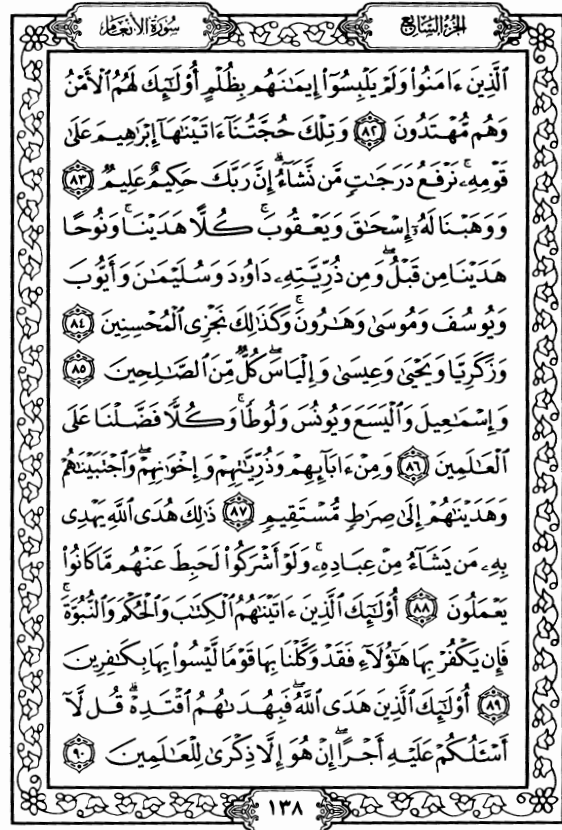 سُورَةُ الأَنْعَامِ
الجُزْءُ السَّابِعُ
ٱلَّذِينَ ءَامَنُوا۟ وَلَمْ يَلْبِسُوٓا۟ إِيمَـٰنَهُم بِظُلْمٍ أُو۟لَـٰٓئِكَ لَهُمُ ٱلْأَمْنُ
وَهُم مُّهْتَدُونَ ٨٢ وَتِلْكَ حُجَّتُنَآ ءَاتَيْنَـٰهَآ إِبْرَٰهِيمَ عَلَىٰ
قَوْمِهِۦ ۚ نَرْفَعُ دَرَجَـٰتٍ مَّن نَّشَآءُ ۗ إِنَّ رَبَّكَ حَكِيمٌ عَلِيمٌ ٨٣
وَوَهَبْنَا لَهُۥٓ إِسْحَـٰقَ وَيَعْقُوبَ ۚ كُلًّا هَدَيْنَا ۚ وَنُوحًا
هَدَيْنَا مِن قَبْلُ ۖ وَمِن ذُرِّيَّتِهِۦ دَاوُۥدَ وَسُلَيْمَـٰنَ وَأَيُّوبَ
وَيُوسُفَ وَمُوسَىٰ وَهَـٰرُونَ ۚ وَكَذَٰلِكَ نَجْزِى ٱلْمُحْسِنِينَ ٨٤
وَزَكَرِيَّا وَيَحْيَىٰ وَعِيسَىٰ وَإِلْيَاسَ ۖ كُلٌّ مِّنَ ٱلصَّـٰلِحِينَ ٨٥
وَإِسْمَـٰعِيلَ وَٱلْيَسَعَ وَيُونُسَ وَلُوطًا ۚ وَكُلًّا فَضَّلْنَا عَلَى
ٱلْعَـٰلَمِينَ ٨٦ وَمِنْ ءَابَآئِهِمْ وَذُرِّيَّـٰتِهِمْ وَإِخْوَٰنِهِمْ ۖ وَٱجْتَبَيْنَـٰهُمْ
وَهَدَيْنَـٰهُمْ إِلَىٰ صِرَٰطٍ مُّسْتَقِيمٍ ٨٧ ذَٰلِكَ هُدَى ٱللَّهِ يَهْدِى
بِهِۦ مَن يَشَآءُ مِنْ عِبَادِهِۦ ۚ وَلَوْ أَشْرَكُوا۟ لَحَبِطَ عَنْهُم مَّا كَانُوا۟
يَعْمَلُونَ ٨٨ أُو۟لَـٰٓئِكَ ٱلَّذِينَ ءَاتَيْنَـٰهُمُ ٱلْكِتَـٰبَ وَٱلْحُكْمَ وَٱلنُّبُوَّةَ ۚ
فَإِن يَكْفُرْ بِهَا هَـٰٓؤُلَآءِ فَقَدْ وَكَّلْنَا بِهَا قَوْمًا لَّيْسُوا۟ بِهَا بِكَـٰفِرِينَ
٨٩ أُو۟لَـٰٓئِكَ ٱلَّذِينَ هَدَى ٱللَّهُ ۖ فَبِهُدَىٰهُمُ ٱقْتَدِهْ ۗ قُل لَّآ
أَسْـَٔلُكُمْ عَلَيْهِ أَجْرًا ۖ إِنْ هُوَ إِلَّا ذِكْرَىٰ لِلْعَـٰلَمِينَ ٩٠
١٣٨